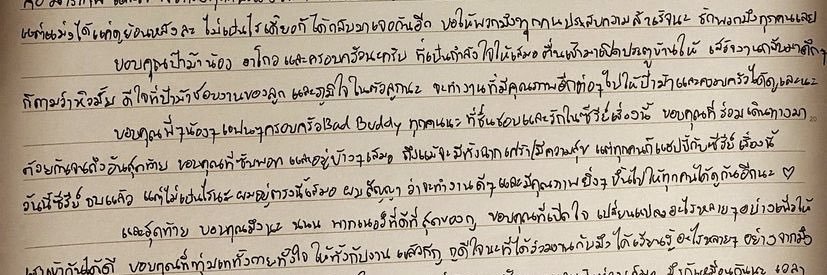 แต่แม่งได้แค่ดูย้อนหลังละ ไม่เป็นไรเดี๋ยวก็ได้กลับมาเจอกันอีก ขอให้พวกมึงทุกคนประสบความสำเร็จนะ รักพวกมึงทุกคนเลย
ขอบคุณป๊าม้าน้อง อาโกว และครอบครัวนะครับ ที่เป็นกำลังใจให้เสมอ ตื่นเช้ามาเปิดประตูบ้านให้ เสร็จงานกลับมาดึกๆ
ก็ถามว่าหิวมั้ย ดีใจที่ป๊าม้าชอบงานของลูก และภูมิใจในตัวลูกนะ จะทำงานที่มีคุณภาพอีกต่อๆไปให้ป๊าม้าและครอบครัวได้ดูและนะ
ขอบคุณพี่ๆน้องๆแฟนๆครอบครัวBad Buddy ทุกคนนะ ที่ชื่นชอบและรักในซีรีย์เรื่องนี้ ขอบคุณที่ร่วมเดินทางมา
ด้วยกันจนถึงวันสุดท้าย ขอบคุณที่ซัพพอต และอยู่ข้างๆเสมอ ถึงแม้จะมีทั้งฉากเศร้า/มีความสุข แต่ทุกคนก็แฮปปี้กับซีรีย์เรื่องนี้
วันนี้ซีรีย์จบแล้ว แต่ไม่เป็นไรนะ ผมอยู่ตรงนี้เสมอ ผมสัญญา ว่าจะทำงานดีๆและมีคุณภาพยิ่งๆขึ้นไปให้ทุกคนได้ดูกันอีกนะ ♡
และสุดท้าย ขอบคุณมึงนะ นนน พาทเนอร์ที่ดีที่สุดของกู ขอบคุณที่เปิดใจ เปลี่ยนแปลงอะไรหลายๆอย่างเพื่อให้
เข้ากันได้ดี ขอบคุณที่ทุ่มเททั้งกายทั้งใจ ให้ทั้งกับงาน และกับกู กูดีใจนะที่ได้ร่วมงานกับมึง ได้เรียนรู้อะไรหลายๆ อย่างจากมึง